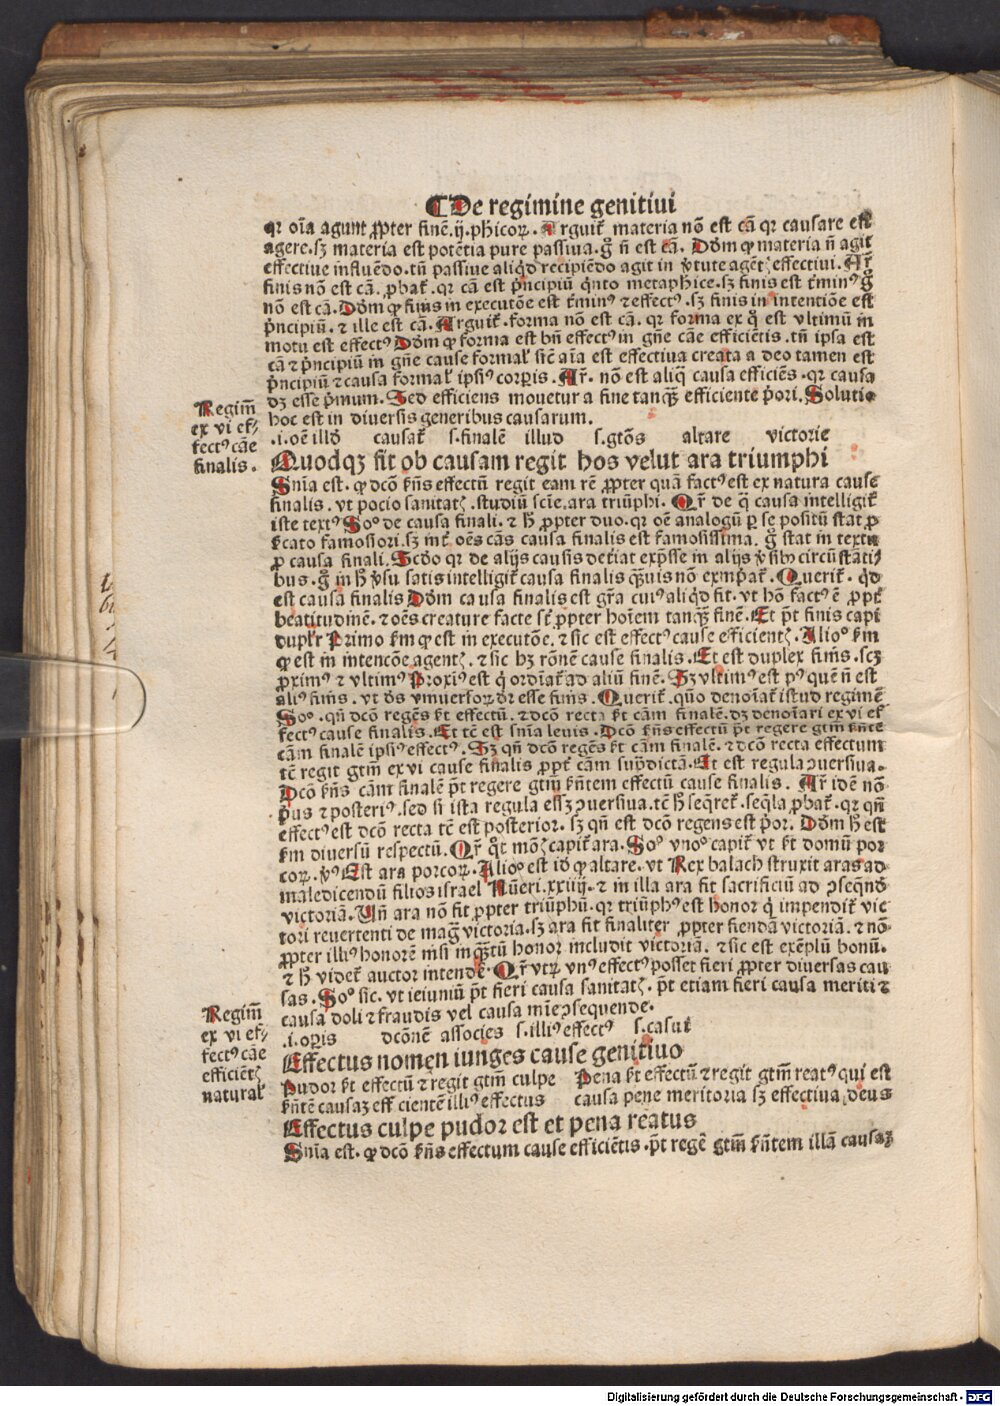 ⸿De regimine genitiui
qꝛ oīa agunt ꝓpter finē.ij.phicoꝝ. Arguit᷑ materia nō est cā qꝛ causare est
agere.sꝫ materia est potētia pure passiua.gͦ n̄ est cā. Dōm ꝙ materia n̄ agit
effectiue influēdo.tn̄ passiue aliqͥd recipiēdo agit in v̓tute agētꝭ effectiui. Ar᷑
finis nō est cā. ꝓbat᷑. qꝛ cā est pͥncipiū qͥnto metaphice.sꝫ finis est t̓minꝰ gͦ
nō est cā. Dōm ꝙ finis in executōe est t̓minꝰ ⁊ effectꝰ. sꝫ finis in intentiōe est
pͥncipiū. ⁊ ille est cā. Arguit᷑.forma nō est cā. qꝛ forma ex qͦ est vltimū in
motu est effectꝰ Dōm ꝙ forma est bn̄ effectꝰ in gn̄e cāe efficiētis. tn̄ ipsa est
cā ⁊ pͥncipiū in gn̄e cause formal̓ sic̄ aīa est effectiua creata a deo tamen est
pͥncipiū ⁊ causa formal̓ ipsiꝰ corꝑis. Ar᷑. nō est aliq̄ causa efficiēs. qꝛ causa
dꝫ esse pͥmum. Sed efficiens mouetur a fine tanqꝫ̄ efficiente pͥori. Solutio
hoc est in diuersis generibus causarum.
Regim̄
ex vi ef⸗
fectꝰ cāe
finalis.
.i.oē illd̓ causat᷑ s.finalē illud s.gtōs altare victorie
Quodqꝫ fit ob causam regit hos velut ara triumphi
Snīa est. ꝙ dcō kn̄s effectū regit eam rē ꝓpter quā factꝰ est ex natura cause
finalis. vt pocio sanitatꝭ.studiū scīe.ara triūphi. Qr᷑ de q̄ causa intelligit᷑
iste textꝰ Soᵒ de causa finali. ⁊ hͦ ꝓpter duo. qꝛ oē analogū ꝑ se positū stat ꝓ
k̓cato famosiori.sꝫ int᷑ oēs cās causa finalis est famosissima. gͦ stat in textu
ꝓ causa finali. Scd̓o qꝛ de alijs causis det̓iat exp̄sse in alijs v̓sibꝫ circūstātij
bus. gͦ in hͦ v̓su satis intelligit᷑ causa finalis qꝫ̄uis nō exprimat᷑. Querit᷑. qͥd
est causa finalis Dōm causa finalis est gr̄a cuiꝰ aliqͥd fit. vt hō factꝰ ē ꝓpt̓
beatitudinē. ⁊ oēs creature facte st̄ ꝓpter hoīem tanqꝫ̄ finē. Et p̄t finis capi
duplr̓ Primo k̓m ꝙ est in executōe. ⁊ sic est effectꝰ cause efficientꝭ. Alioᵒ k̓m
ꝙ est in intencōe agentꝭ. ⁊ sic hꝫ rōnē cause finalis. Et est duplex finis. scꝫ
ꝓximꝰ ⁊ vltimꝰ Proxiꝰ est qͥ ordīat᷑ ad aliū finē. Sꝫ vltimꝰ est pꝰ quē n̄ est
aliꝰ finis. vt dꝰs vniuersoꝝ dr̄ esse finis. Querit᷑. quō denoīat᷑ istud regimē
Soᵒ. qn̄ dcō regēs k̓t effectū. ⁊ dcō recta k̓t cām finalē.dꝫ denoīari ex vi ef
fectꝰ cause finalis. Et tē est snīa leuis. Dcō kn̄s effectū p̄t regere gtm̄ kn̄tē
cām finalē ipsiꝰ effectꝰ. Sꝫ qn̄ dcō regēs k̓t cām finalē. ⁊ dcō recta effectum
tē regit gtm̄ ex vi cause finalis ꝓpt̓ cām sup̄dictā. Et est regula ꝯuersiua.
Dcō kn̄s cām finalē p̄t regere gtm̄ kn̄tem effectū cause finalis. Ar᷑ idē nō
pͥus ⁊ posteriꝰ.sed si ista regula essꝫ ꝯuersiua.tē hͦ seqret᷑. seq̄la ꝓbat᷑. qꝛ qn̄
effectꝰ est dcō recta tē est posterior. sꝫ qn̄ est dcō regens est pͥor. Dōm hͦ est
k̓m diuersū respectū. Qr᷑ qͦt mōꝭ capit᷑ ara. Soᵒ vnoᵒ capit᷑ vt k̓t domū por
coꝝ. v̓ꝰ Est ara porcoꝝ. Alioᵒ est id̓ ꝙ altare. vt Rex balach struxit aras ad
maledicendū filios israel Nūeri.xxiiij. ⁊ in illa ara fit sacrificiū ad ꝯseqn̄d̓
victoriā. Un̄ ara nō fit ꝓpter triūphū. qꝛ triūphꝰ est honor qͥ impendit᷑ vic
tori reuertenti de maḡ victoria.sꝫ ara fit finaliter ꝓpter fiendā victoriā. ⁊ nō
ꝓpter illiꝰ honorē nisi inqꝫ̄tū honor includit victoriā. ⁊ sic est exēplū bonū.
⁊ hͦ videt᷑ auctor intende̓. Qr᷑ vtꝝ vnꝰ effectꝰ posset fieri ꝓpter diuersas cau
sas. Soᵒ sic. vt ieiuniū p̄t fieri causa sanitatꝭ. p̄t etiam fieri causa meriti ⁊
causa doli ⁊ fraudis vel causa mīe ꝯsequende.
Regim̄
ex vi ef⸗
fectꝰ cāe
efficiētꝭ
natural̓
.i.oꝑis dcōnē associes s.illiꝰ effectꝰ s.casui
Effectus nomen iunges cause genitiuo
Pudor k̓t effectū ⁊ regit gtm̄ culpe Pena k̓t effectū ⁊ regit gtm̄ reatꝰ qui est
kn̄tē causaꝫ efficientē illiꝰ effectus causa pene meritoria sꝫ effectiua deus
Effectus culpe pudor est et pena reatus
Snīa est. ꝙ dcō kn̄s effectum cause efficiētis. p̄t rege̓ gtm̄ kn̄tem illā causaꝫ
Digitalisierung gefördert durch die Deutsche Forschungsgemeinschaft - DFG